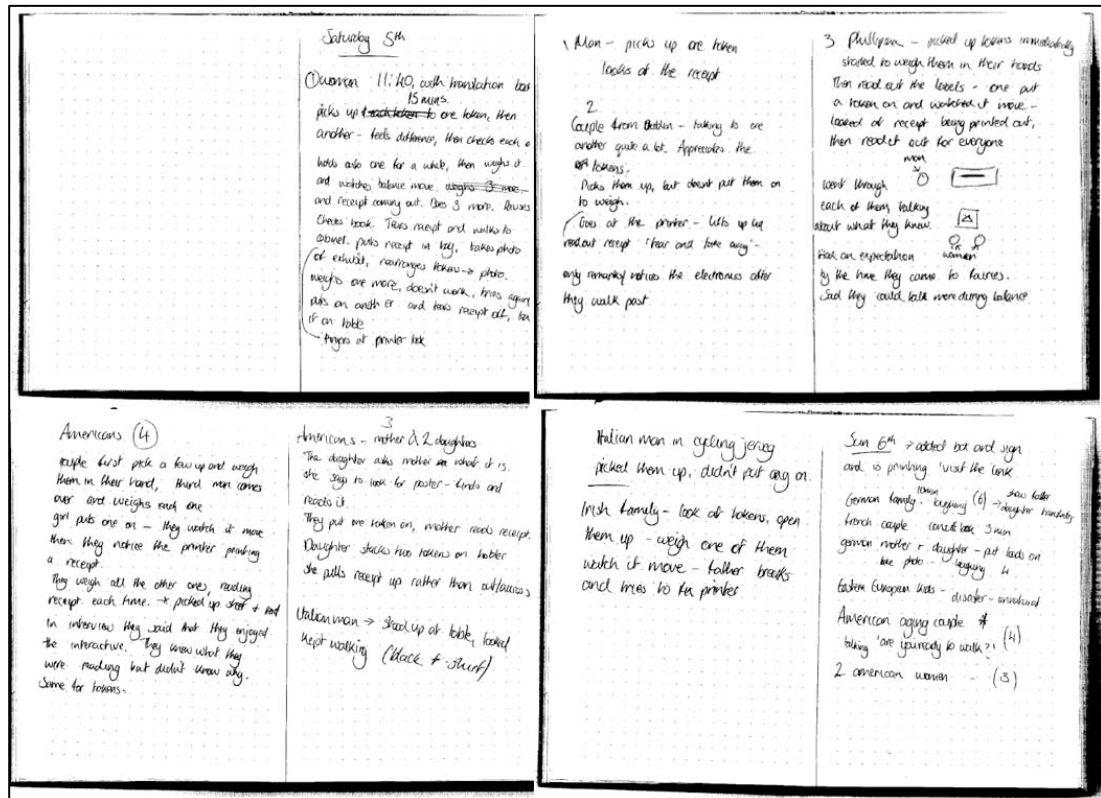 Saturday 5th
① woman 11:40, with translation
15 mins.
picks up to one token, then
another - feels difference, then checks each
holds onto one for a while, then weighs it
and watches balance move.
and receipt coming out. Does 3 more. Pauses
Checks book. Tears receipt and walks to
cabinet. puts receipt in bag, takes photo
of exhibit, rearranges tokens → photo.
weighs one more, doesn't work, tries again
puts on another and tears receipt off,
it on table
fingers at printer
1 Man - picks up one token
looks at the receipt
2
Couple from Dublin - talking to one
another quite a lot. Appreciates the
tokens.
Picks them up, but doesn't put them on
to weigh.
Goes at the printer - lifts up
read out receipt 'tear and take away' -
only remarkably notices the electronics after
they walk past
3 - picked up tokens immediately
started to weigh them in their hands
Then read out the labels - one put
a token on and watched it move -
looked at receipt being printed out,
then read it out for everyone
man
went through
each of them talking
about what they knew.
women
Had an expectation
by the time they came to fairies.
Said they could talk more during balance
Americans (4)
couple first pick a few up and weigh
them in their hand, third man comes
over and weighs each one
girl puts one on - they watch it move
then they notice the printer printing
a receipt.
They weigh all the other ones, reading
receipt each time. → picked up sheet + read
In interview they said that they enjoyed
the interactive. They knew what they
were reading but didn't know why.
Same for tokens.
3
Americans - mother & 2 daughters
The daughter asks mother what it is.
she says to look for poster - finds and
reads it.
They put one token on, mother reads receipt.
Daughter stacks two tokens on holder
she pulls receipt up rather than out/across
Italian man → stood up at table, looked
kept walking (black t-shirt)
Italian man in cycling jersey
picked them up, didn't put any on.
Irish family - look at tokens, open
them up - weigh one of them
watch it move - father breaks
and tries to fix printer
Sun 6th → added box and sign
and is printing 'visit the
German family - laughing (6) → daughter translating
token
show father
french couple 3 min
german mother + daughter - put hands on
take photo - laughing 4
Eastern European kids - disaster - unrelated
American aging couple
talking 'are you ready to walk?' (4)
2 american women - (3)